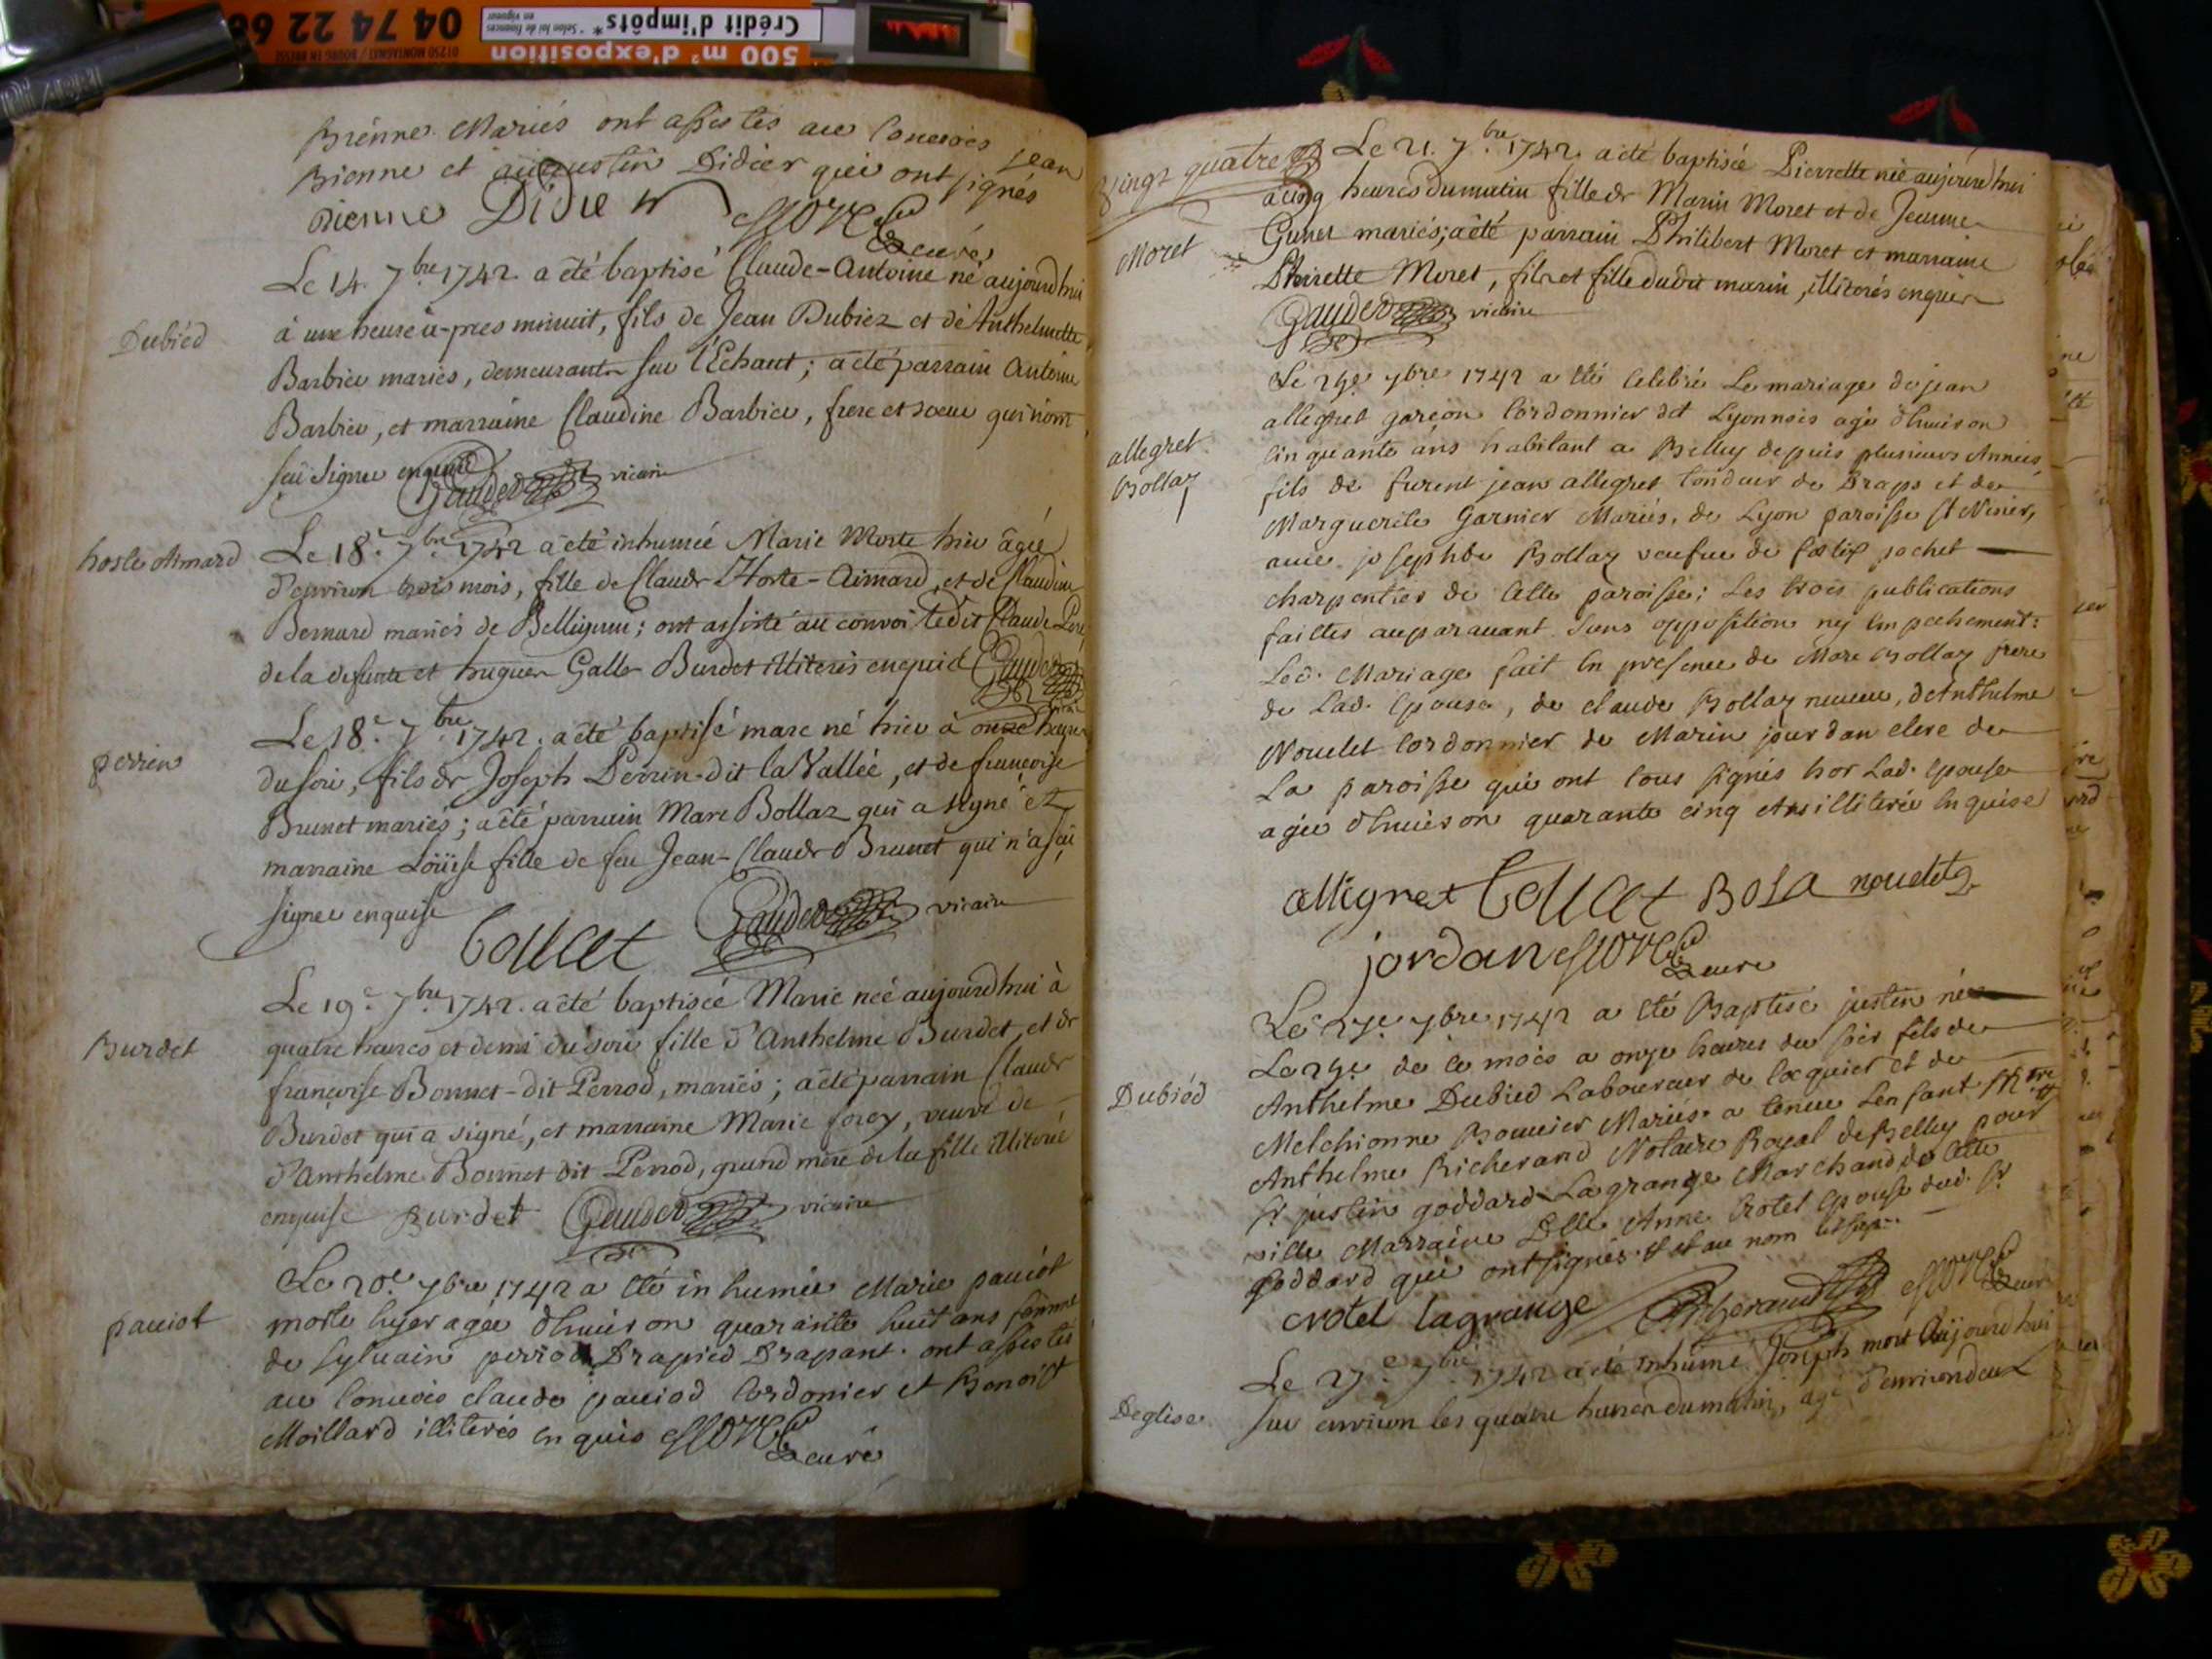 04 74 22 66
Crédit d'impôts*
* Selon loi de finances en vigueur
500 m² d'exposition
01250 MONTAGNAT / BOURG EN BRESSE
Brénne Mariés ont assistés au Convoies jean
Bienne et augustin Didier qui ont signés
Bienne Didier curé
Le 14. 7.bre 1742. a été baptisé Claude-Antoine né aujourdhui
Dubiéd
à une heure a-pres minuit, fils de Jean Dubiez et de Anthelmette
Barbier mariés, demeurants sur l'Echaut; a été parrain Antoine
Barbier, et marraine Claudine Barbier, frere et soeur qui n'ont
sçu signer enquis
Gaudet vicaire
hoste Aimard
Le 18.e 7.bre 1742 a été inhumée Marie Morte hier âgée
d'environ trois mois, fille de Claude Hoste-Aimard, et de Claudine
Bernard mariés de ; ont assisté au convoi ledit Claude Pere
de la defunte et hugues Galle Burdet illiterés enquis Gaudet
perrin
Le 18.e 7.bre 1742. a été baptisé marc né hier à onze heures
du soir, fils de Joseph Perrin-dit la Vallée, et de françoise
Brunet mariés; a été parrain Marc Bollaz qui a signé et
marraine Loüise fille de feu Jean-Claude Brunet qui n'a sçu
signer enquise
Gaudet vicaire
Burdet
Le 19.e 7.bre 1742. a été baptisée Marie née aujourdhui à
quatre heures et demi du soir fille d'Anthelme Burdet, et de
françoise Bonnet-dit Perrod, mariés; a été parrain Claude
Burdet qui a signé, et marraine Marie forey, veuve de
d'Anthelme Bonnet dit Perrod, grand mere de la fille illiterée
enquise Burdet Gaudet vicaire
pauiot
Le 20.e 7bre 1742 a été inhumée Marie pauiot
morte hyer agée d'huiron quarante huit ans femme
de Sylvain perrod Drapied Drapant. ont assistés
au Convoies claude pauiod Cordonier et Benoist
Moillard illiterés enquis curé
Vingt quatre
Le 21. 7.bre 1742. a été baptisée Pierrette née aujourdhui
Moret
a cinq heures du matin fille de Marin Moret et de Jeanne
Gunet mariés; a été parrain Philibert Moret et marraine
Pierrette Moret, fils et fille dudit marin, illiterés enquis
Gaudet vicaire
allegret
Bollaz
Le 7bre 1742 a été Celebré Le mariage de jean
allegret garçon Cordonnier dit Lyonnois agé d'huiron
Cinquante ans habitant a Belley depuis plusieurs Années,
fils de furent jean allegret tondeur de Draps et de
Marguerite Garnier Mariés, de Lyon paroisse St Nisier,
avec josephte Bollaz veufue de jochet
charpentier de Cette paroisse; Les trois publications
faittes auparauant Sans opposition ny Empechement:
Led. Mariage fait En presence de Marc Bollaz frere
de Lad. Epouse, de claude Bollaz neueu, d'Anthelme
Nouelet Cordonnier de Marin jourdan clerc de
La paroisse qui ont tous signés hor Lad. Epouse
agée d'huiron quarante cinq Ans illiterée Enquise
allegret Bola nouelet
jordan curé
Dubiéd
Le 27e 7bre 1742 a été Baptisé justin né
Le de ce mois a onze heures du soir fils de
Anthelme Dubied Laboureur de Coquier et de
Melchionne Bouuier Mariés a tenue Lenfant Mtre
Anthelme Richerand Notaire Royal de Belley pour
Sr justin goddard Lagrange Marchand de Cette
ville Marraine Delle Anne Crotel Epouse dud. Sr
goddard qui ont signés et au nom
crotel lagrange Richerand curé
Deglise
Le 27.e 7.bre 1742 a été inhumé Joseph mort Aujourdhui
sur environ les quatre heures du matin, agé d'environ deux